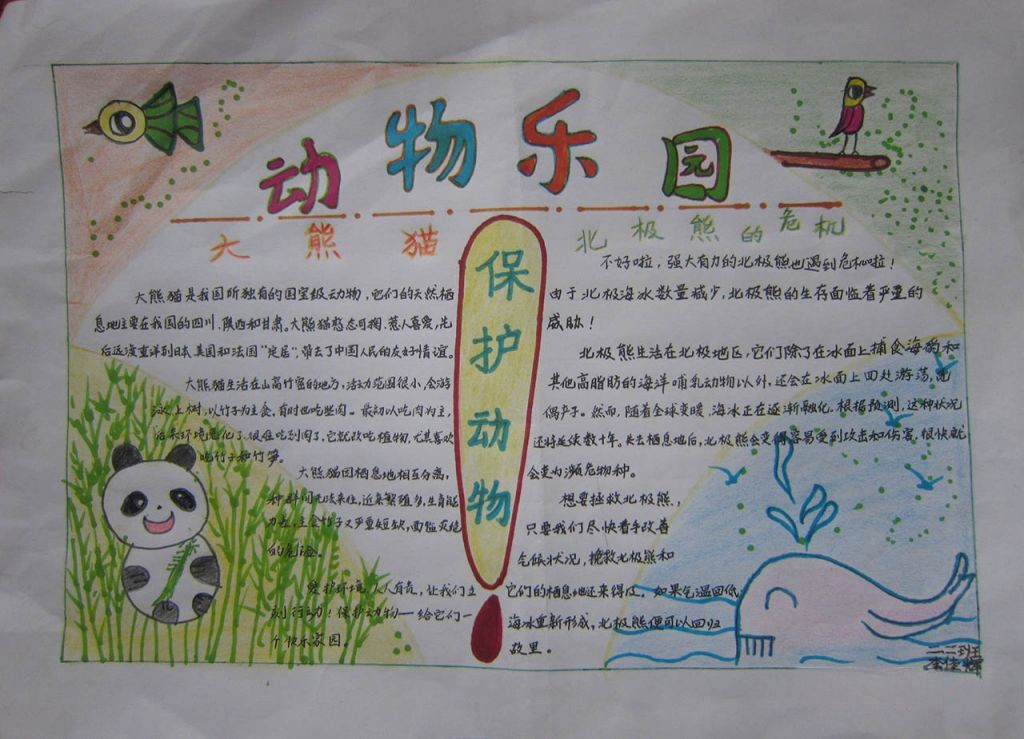 动物乐园
大熊猫
大熊猫是我国所独有的国宝级动物，它们的天然栖
息地主要在我国的四川、陕西和甘肃。大熊猫憨态可掬、惹人喜爱，先
后远渡重洋到日本、美国和法国“定居”，带去了中国人民的友好情谊。
大熊猫生活在山高竹密的地方，活动范围很小，会游
泳、上树，以竹子为主食，有时也吃些肉。最初以吃肉为主，
后来环境恶化了，很难吃到肉了，它就改吃植物，尤其喜欢
吃竹子和竹笋。
大熊猫因栖息地相互分离，
种群间无法来往，近亲繁殖多，生育能
力差，主食竹子又严重短缺，面临灭绝
的危险。
爱护环境，人人有责，让我们立
刻行动！保护动物——给它们一
个快乐家园。
保护动物
北极熊的危机
不好啦，强大有力的北极熊也遇到危机啦！
由于北极海冰数量减少，北极熊的生存面临着严重的
威胁！
北极熊生活在北极地区，它们除了在冰面上捕食海豹和
其他高脂肪的海洋哺乳动物以外，还会在冰面上四处游荡，
偶产子。然而，随着全球变暖，海冰正在逐渐融化。根据预测，这种状况
还将延续数十年。失去栖息地后，北极熊会变得容易受到攻击和伤害，很快就
会变为濒危物种。
想要拯救北极熊，
只要我们尽快着手改善
气候状况，挽救北极熊和
它们的栖息地还来得及。如果气温回低
海冰重新形成，北极熊便可以回归
故里。
二、二班
李佳辉